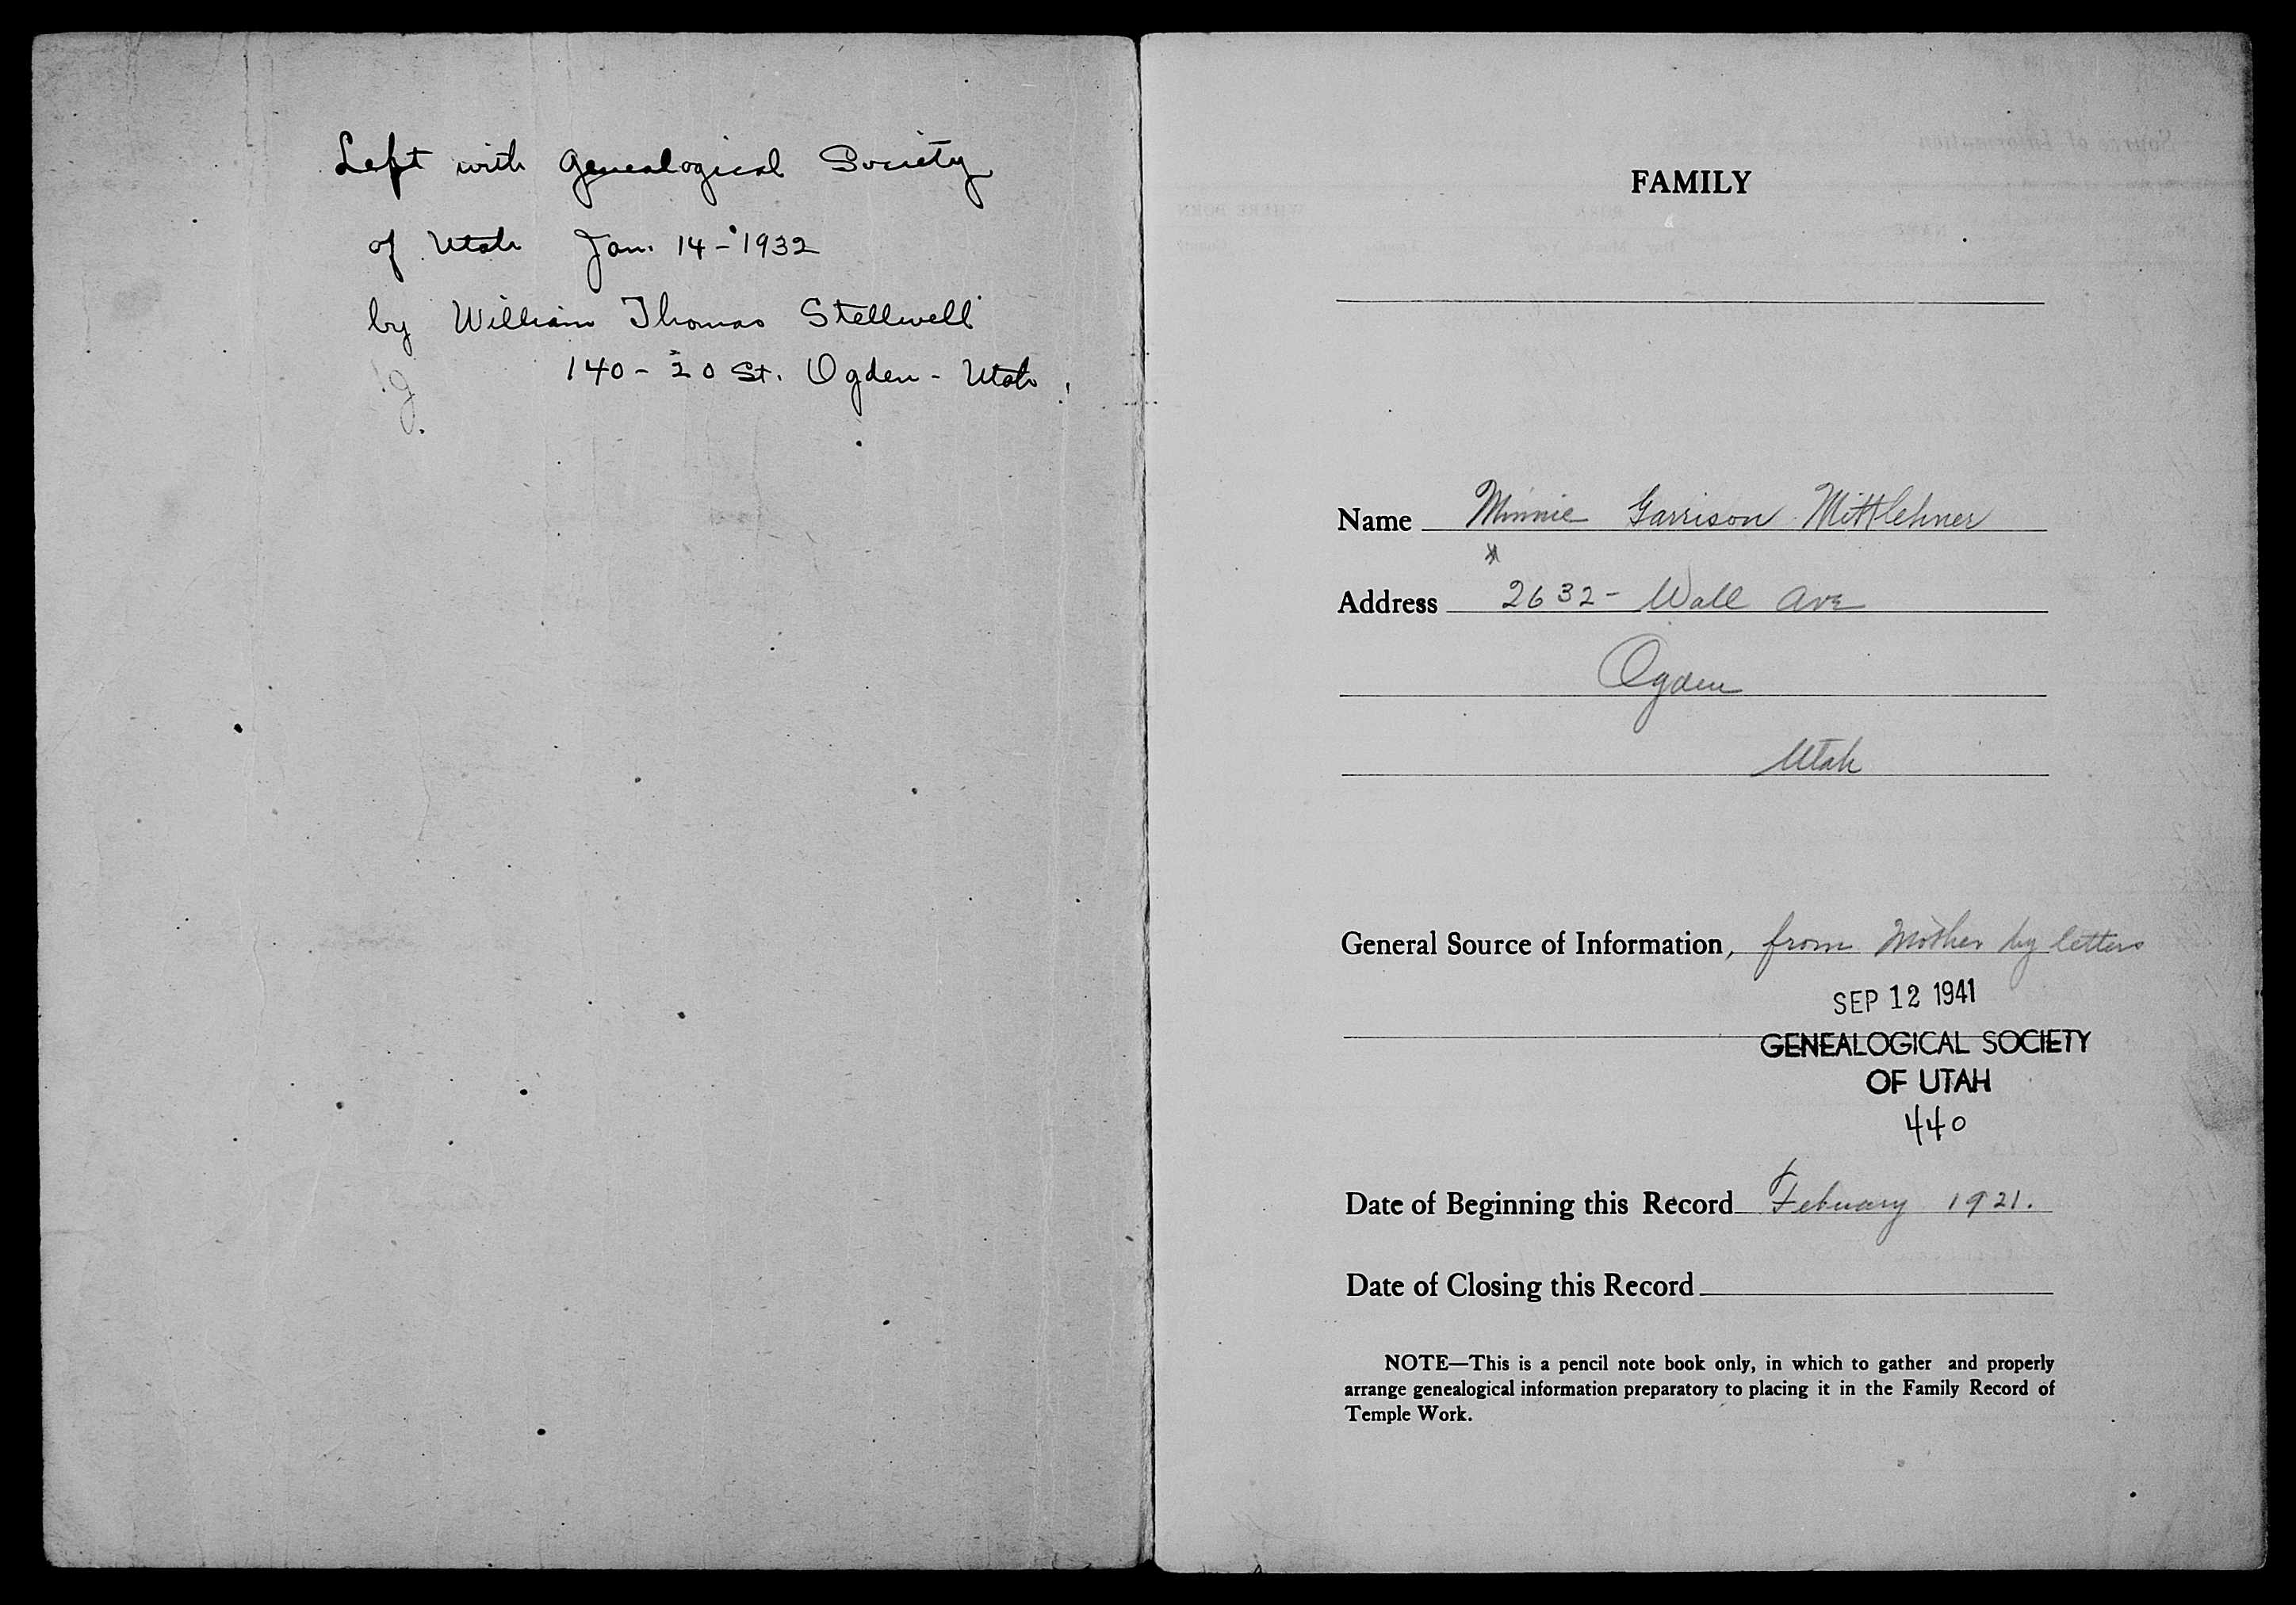 Left with Genealogical Society
of Utah Jan. 14-1932
by William Thomas Stellwell
140-20 St. Ogden - Utah.
FAMILY
Name Minnie Garrison Mittlehner
Address 2632- Wall Ave
Ogden
Utah
General Source of Information, from Mother by letters
SEP 12 1941
GENEALOGICAL SOCIETY
OF UTAH
440
Date of Beginning this Record February 1921.
Date of Closing this Record
NOTE—This is a pencil note book only, in which to gather and properly
arrange genealogical information preparatory to placing it in the Family Record of
Temple Work.